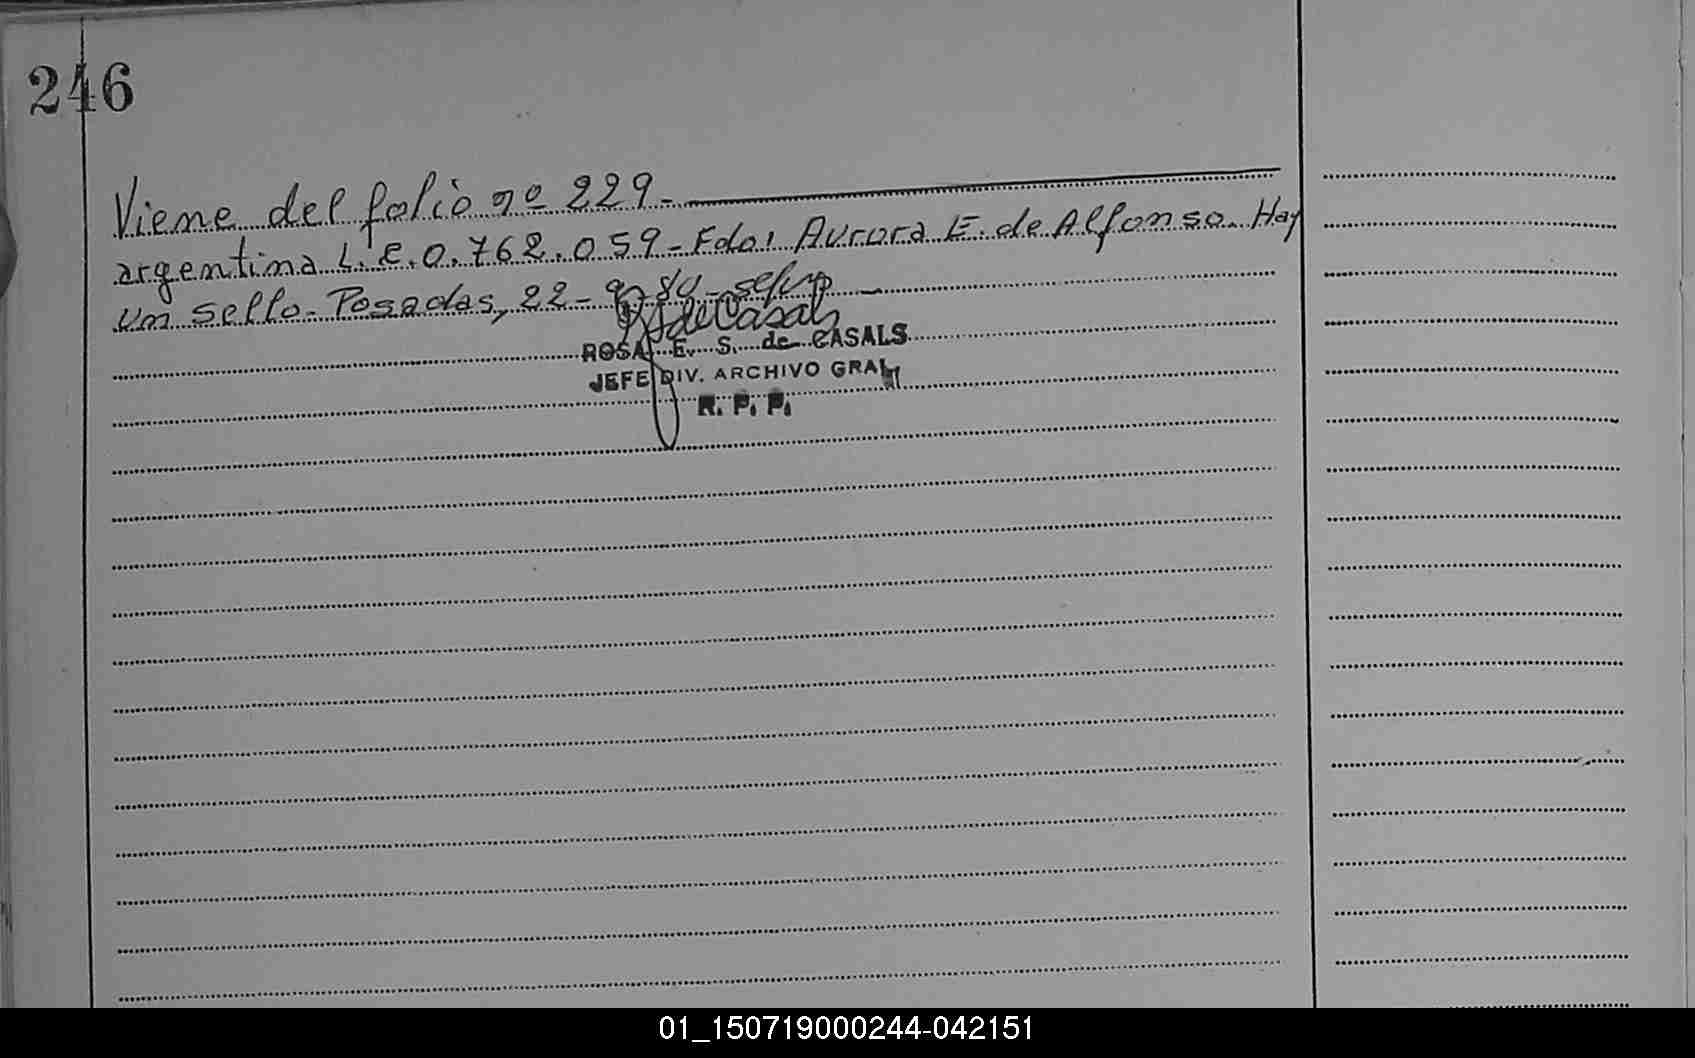 246
Viene del folio nº 229.-
argentina L.E.0.762.059-Fdo: Aurora E. de Alfonso. Hay
un sello. Posadas, 22-
ROSA E. S. de CASALS
JEFE DIV. ARCHIVO GRAL
R. P. P.
01_150719000244-042151